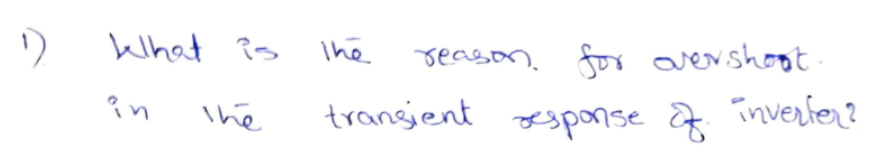 1) What is the reason. for overshoot.
in the transient response of. inverter?